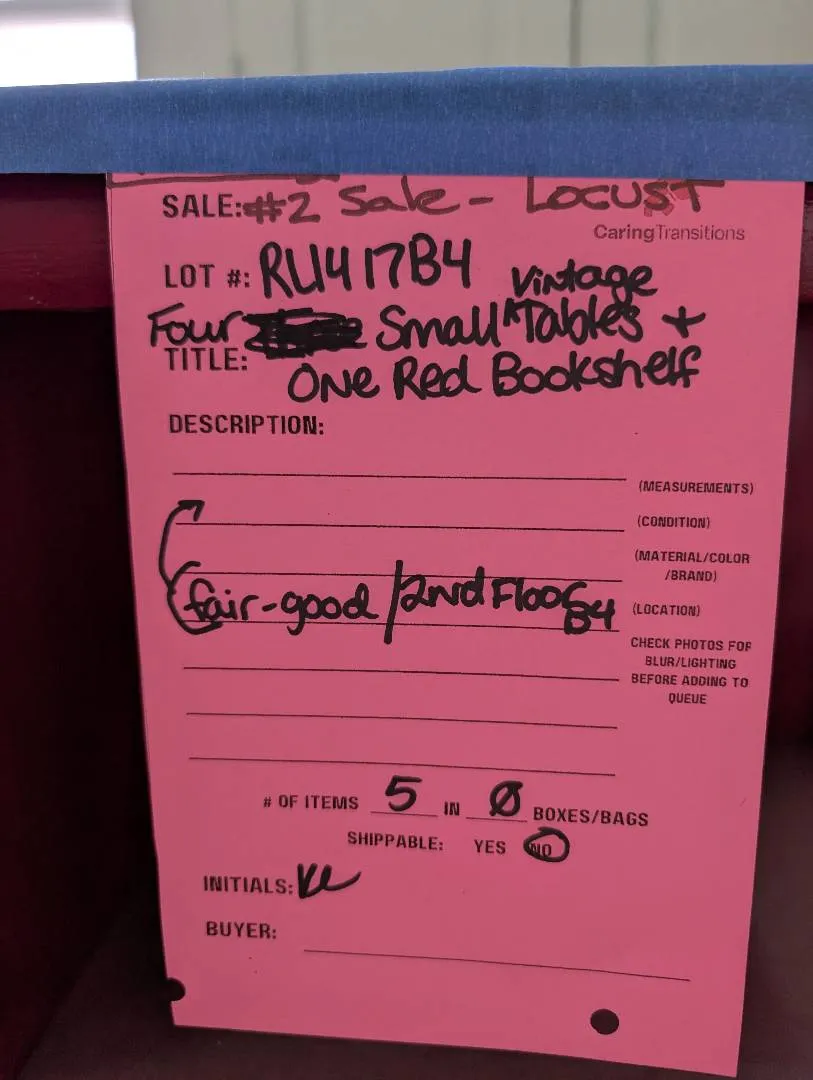 SALE: #2 Sale - LOCUST
CaringTransitions
LOT #: RU417B4
Vintage
Four Small ^ Tables +
TITLE: ONE Red Bookshelf
DESCRIPTION:
(MEASUREMENTS)
(CONDITION)
(MATERIAL/COLOR
/BRAND)
fair-good / 2nd Floor (LOCATION)
B4
CHECK PHOTOS FOR
BLUR/LIGHTING
BEFORE ADDING TO
QUEUE
# OF ITEMS 5 IN Ø BOXES/BAGS
SHIPPABLE: YES NO
INITIALS:
BUYER: